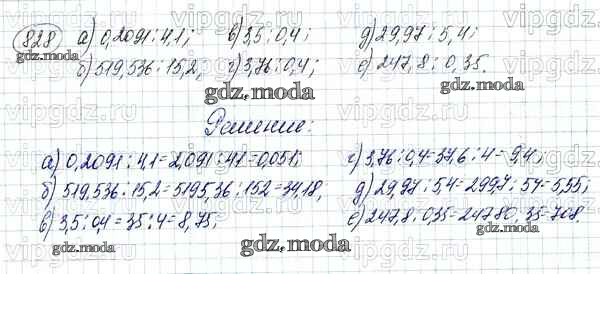 828 а) 0,2091 : 4,1; в) 3,5 : 0,4; д) 29,97 : 5,4;
б) 519,536 : 15,2; г) 3,76 : 0,4; е) 247,8 : 0,35.
gdz.moda
gdz.moda
gdz.moda
Решение:
а) 0,2091 : 4,1 = 2,091 : 41 = 0,051; г) 3,76 : 0,4 = 37,6 : 4 = 9,4;
б) 519,536 : 15,2 = 5195,36 : 152 = 34,18, д) 29,97 : 5,4 = 299,7 : 54 = 5,55;
в) 3,5 : 0,4 = 35 : 4 = 8,75; е) 247,8 : 0,35 = 24780 : 35 = 708.
gdz.moda
gdz.moda
gdz.moda
vipgdz.ru